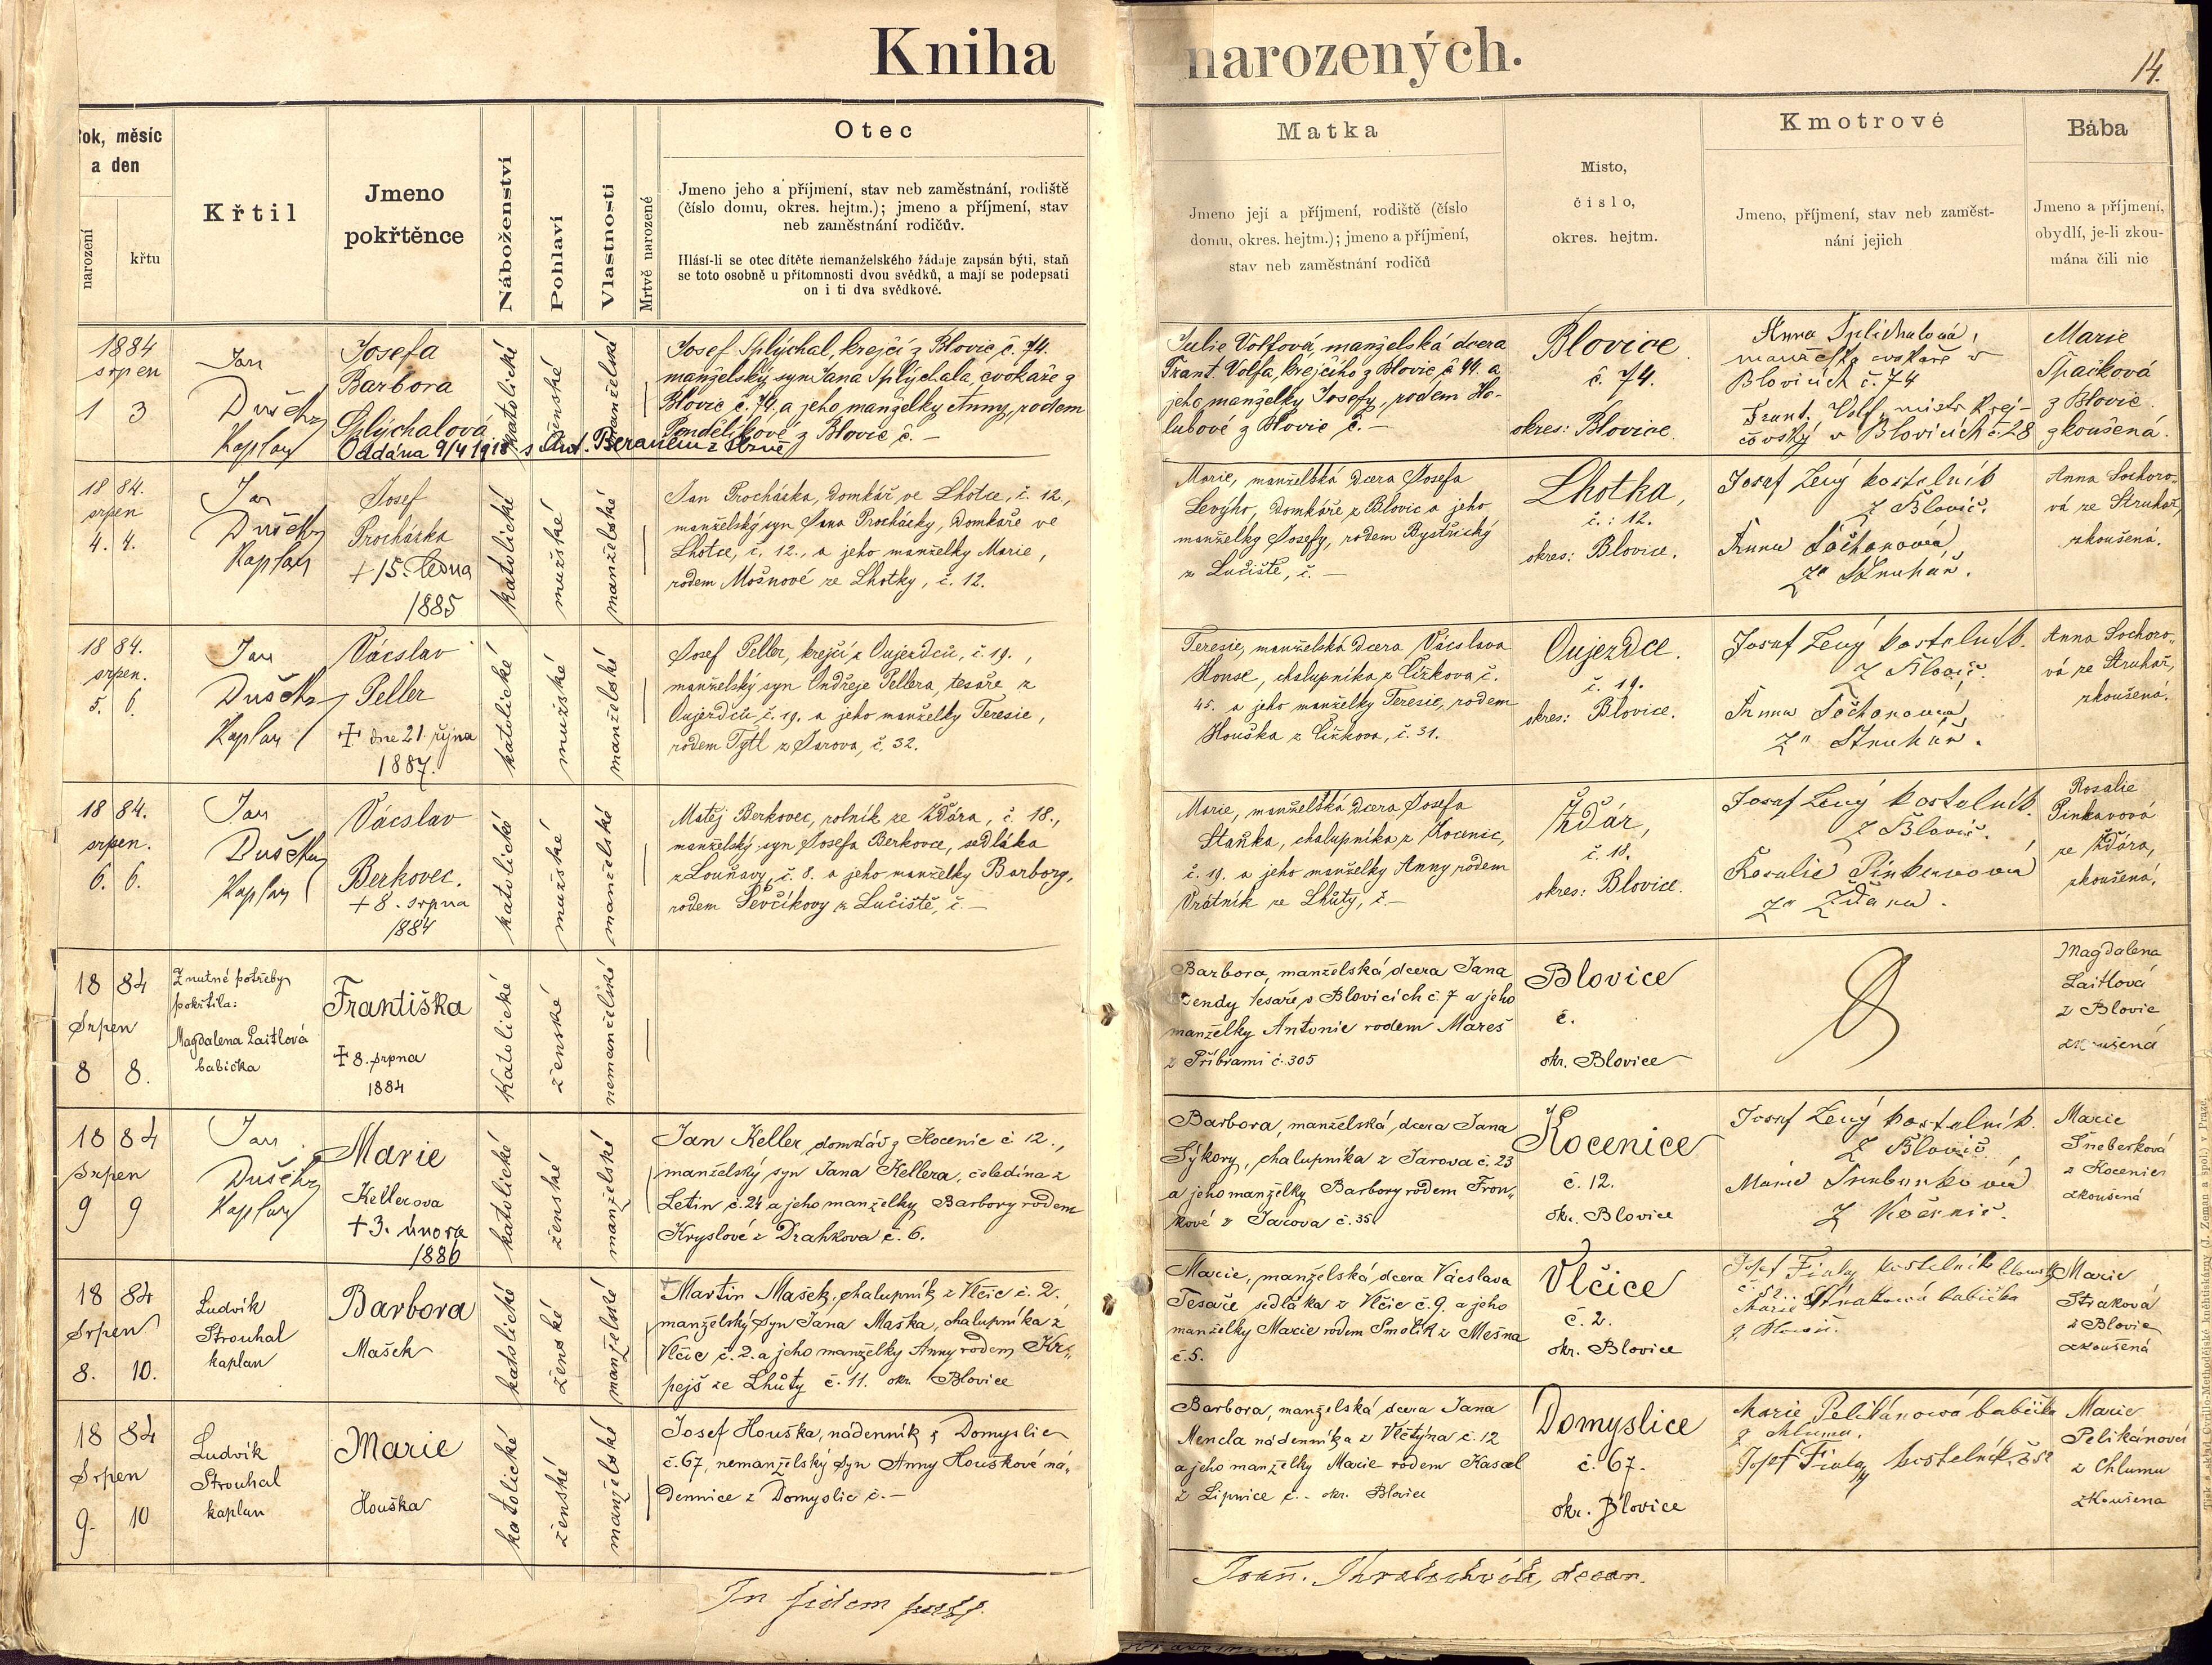 Kniha narozených.
14.
Rok, měsíc
a den
narození
křtu
Křtil
Jmeno
pokřtěnce
Náboženství
Pohlaví
Vlastnosti
Mrtvě narozené
Otec
Jmeno jeho a příjmení, stav neb zaměstnání, rodiště
(číslo domu, okres. hejtm.); jmeno a příjmení, stav
neb zaměstnání rodičův.
Hlásí-li se otec dítěte nemanželského žádaje zapsán býti, staň
se toto osobně u přítomnosti dvou svědků, a mají se podepsati
on i ti dva svědkové.
Matka
Jmeno její a příjmení, rodiště (číslo
domu, okres. hejtm.); jmeno a příjmení,
stav neb zaměstnání rodičů
Misto,
číslo,
okres. hejtm.
Kmotrové
Jmeno, příjmení, stav neb zaměst-
nání jejich
Bába
Jmeno a příjmení,
obydlí, je-li zkou-
mána čili nic
1884
srpen
1 3
Jan
Dušek
Kaplan
Josefa
Barbora
Splýchalová
Oddána 9/4 1918 s Ant. Beranem z
katolické
ženské
manželské
Josef Splýchal, krejčí z Blovic č. 74.
manželský syn Jana Splýchala, cvokaře z
Blovic č. 74. a jeho manželky Anny, rodem
Pondělíkové z Blovic č. –
Julie Volfová, manželská dcera
Frant. Volfa, krejčího z Blovic č. 44. a
jeho manželky Josefy, rodem Ho-
lubové z Blovic č. –
Blovice
č. 74.
okres: Blovice.
Anna Splichalová,
manželka cvokaře v
Blovicích č. 74
Frant. Volf, mistr krej-
čovský v Blovicích č. 28
Marie
Špačková
z Blovic
zkoušená.
1884.
srpen
4. 4.
Jan
Dušek
Kaplan
Josef
Procházka
+ 15. ledna
1885
katolické
mužské
manželské
Jan Procházka, domkář ve Lhotce, č. 12.,
manželský syn Jana Procházky, domkáře ve
Lhotce, č. 12., a jeho manželky Marie,
rodem Mošnové ze Lhotky, č. 12.
Marie, manželská dcera Josefa
Levýho, domkáře z Blovic a jeho
manželky Josefy, rodem Bystřický
z Lučiště, č. –
Lhotka,
č.: 12.
okres: Blovice.
Josef Lený kostelník
z Blovic.
Anna
ze Struhař.
Anna Sochoro-
vá ze Struhař,
zkoušená.
1884.
srpen.
5. 6.
Jan
Dušek
Kaplan
Vácslav
Peller
+ dne 21. října
1887.
katolické
mužské
manželské
Josef Peller, krejčí z Oujezdců, č. 19.,
manželský syn Ondřeje Pellera, tesaře z
Oujezdců, č. 19. a jeho manželky Teresie,
rodem Tytl z Jarova, č. 32.
Teresie, manželská dcera Vácslava
Honse, chalupníka z Čížkova č.
45. a jeho manželky Teresie, rodem
Houška z Čížkova, č. 31.
Oujezdce.
č. 19.
okres: Blovice.
Josef Lený kostelník
z Blovic.
Anna
ze Struhař.
Anna Sochoro-
vá ze Struhař,
zkoušená.
1884.
srpen.
6. 6.
Jan
Dušek
Kaplan
Vácslav
Berkovec.
+ 8. srpna
1884
katolické
mužské
manželské
Matěj Berkovec, rolník ze Žďára, č. 18.,
manželský syn Josefa Berkovce, sedláka
z Louňavy, č. 8. a jeho manželky Barbory,
rodem Ševčíkovy z Lučiště, č. –
Marie, manželská dcera Josefa
Staňka, chalupníka z Kocenic,
č. 19. a jeho manželky Anny rodem
Vrátník ze Lhůty, č. –
Žďár,
č. 18.
okres: Blovice.
Josef Lený kostelník.
z Blovic.
Rosalie Pinkavová
ze Ždáru.
Rosalie
Pinkavová
ze Žďára,
zkoušená,
1884
Srpen
8 8.
Z nutné potřeby
pokřtila:
Magdalena Laitlová
babička
Františka
+ 8. srpna
1884
Katolické
ženské
nemanželské
Barbora, manželská dcera Jana
tesaře v Blovicích č. 7 a jeho
manželky Antonie rodem Mareš
z Příbrami č. 305
Blovice
č.
okr. Blovice
Magdalena
Laitlová
z Blovic
zkoušená
1884
Srpen
9 9
Jan
Dušek
Kaplan
Marie
Kellerova
+ 3. února
1886
katolické
ženské
manželské
Jan Keller, domkář z Kocenic č 12.,
manželský syn Jana Kellera, čeledína z
Letin č. 24 a jeho manželky Barbory rodem
Kryslové z Drahkova č. 6.
Barbora, manželská dcera Jana
Sýkory, chalupníka z Jarova č. 23
a jeho manželky Barbory rodem Fron-
kové z Jarova č. 35.
Kocenice
č. 12.
okr. Blovice
Josef Lený kostelník.
z Blovic
Marie
z Kocenic.
Marie
Šneberková
z Kocenic
zkoušená
1884
Srpen
8. 10.
Ludvík
Strouhal
kaplan
Barbora
Mašek
katolické
ženské
manželské
Martin Mašek, chalupník z Vlčic č. 2.
manželský syn Jana Maška, chalupníka z
Vlčic č. 2. a jeho manželky Anny rodem Kr-
pejš ze Lhůty č. 11. okr. Blovice
Marie, manželská dcera Vácslava
Tesaře sedláka z Vlčic č. 9. a jeho
manželky Marie rodem Smolík z Mešna
č. 5.
Vlčice
č. 2.
okr. Blovice
Josef Fialy kostelník
č. 52.
Marie Straková babička
z Blovic.
Marie
Straková
z Blovic
zkoušená
1884
Srpen
9. 10
Ludvík
Strouhal
kaplan
Marie
Houška
katolické
ženské
manželské
Josef Houška, nádenník z Domyslic
č. 67, nemanželský syn Anny Houškové ná-
dennice z Domyslic č. –
Barbora, manželská dcera Jana
Mencla nádenníka z Vlčtýna č. 12
a jeho manželky Marie rodem Kasal
z Lipnice č. – okr. Blovice
Domyslice
č. 67.
okr. Blovice
Marie Pelikánová babička
z Chlumu.
Josef Fialy kostelník, č. 52
Marie
Pelikánová
z Chlumu
zkoušena
In fidem
decan.